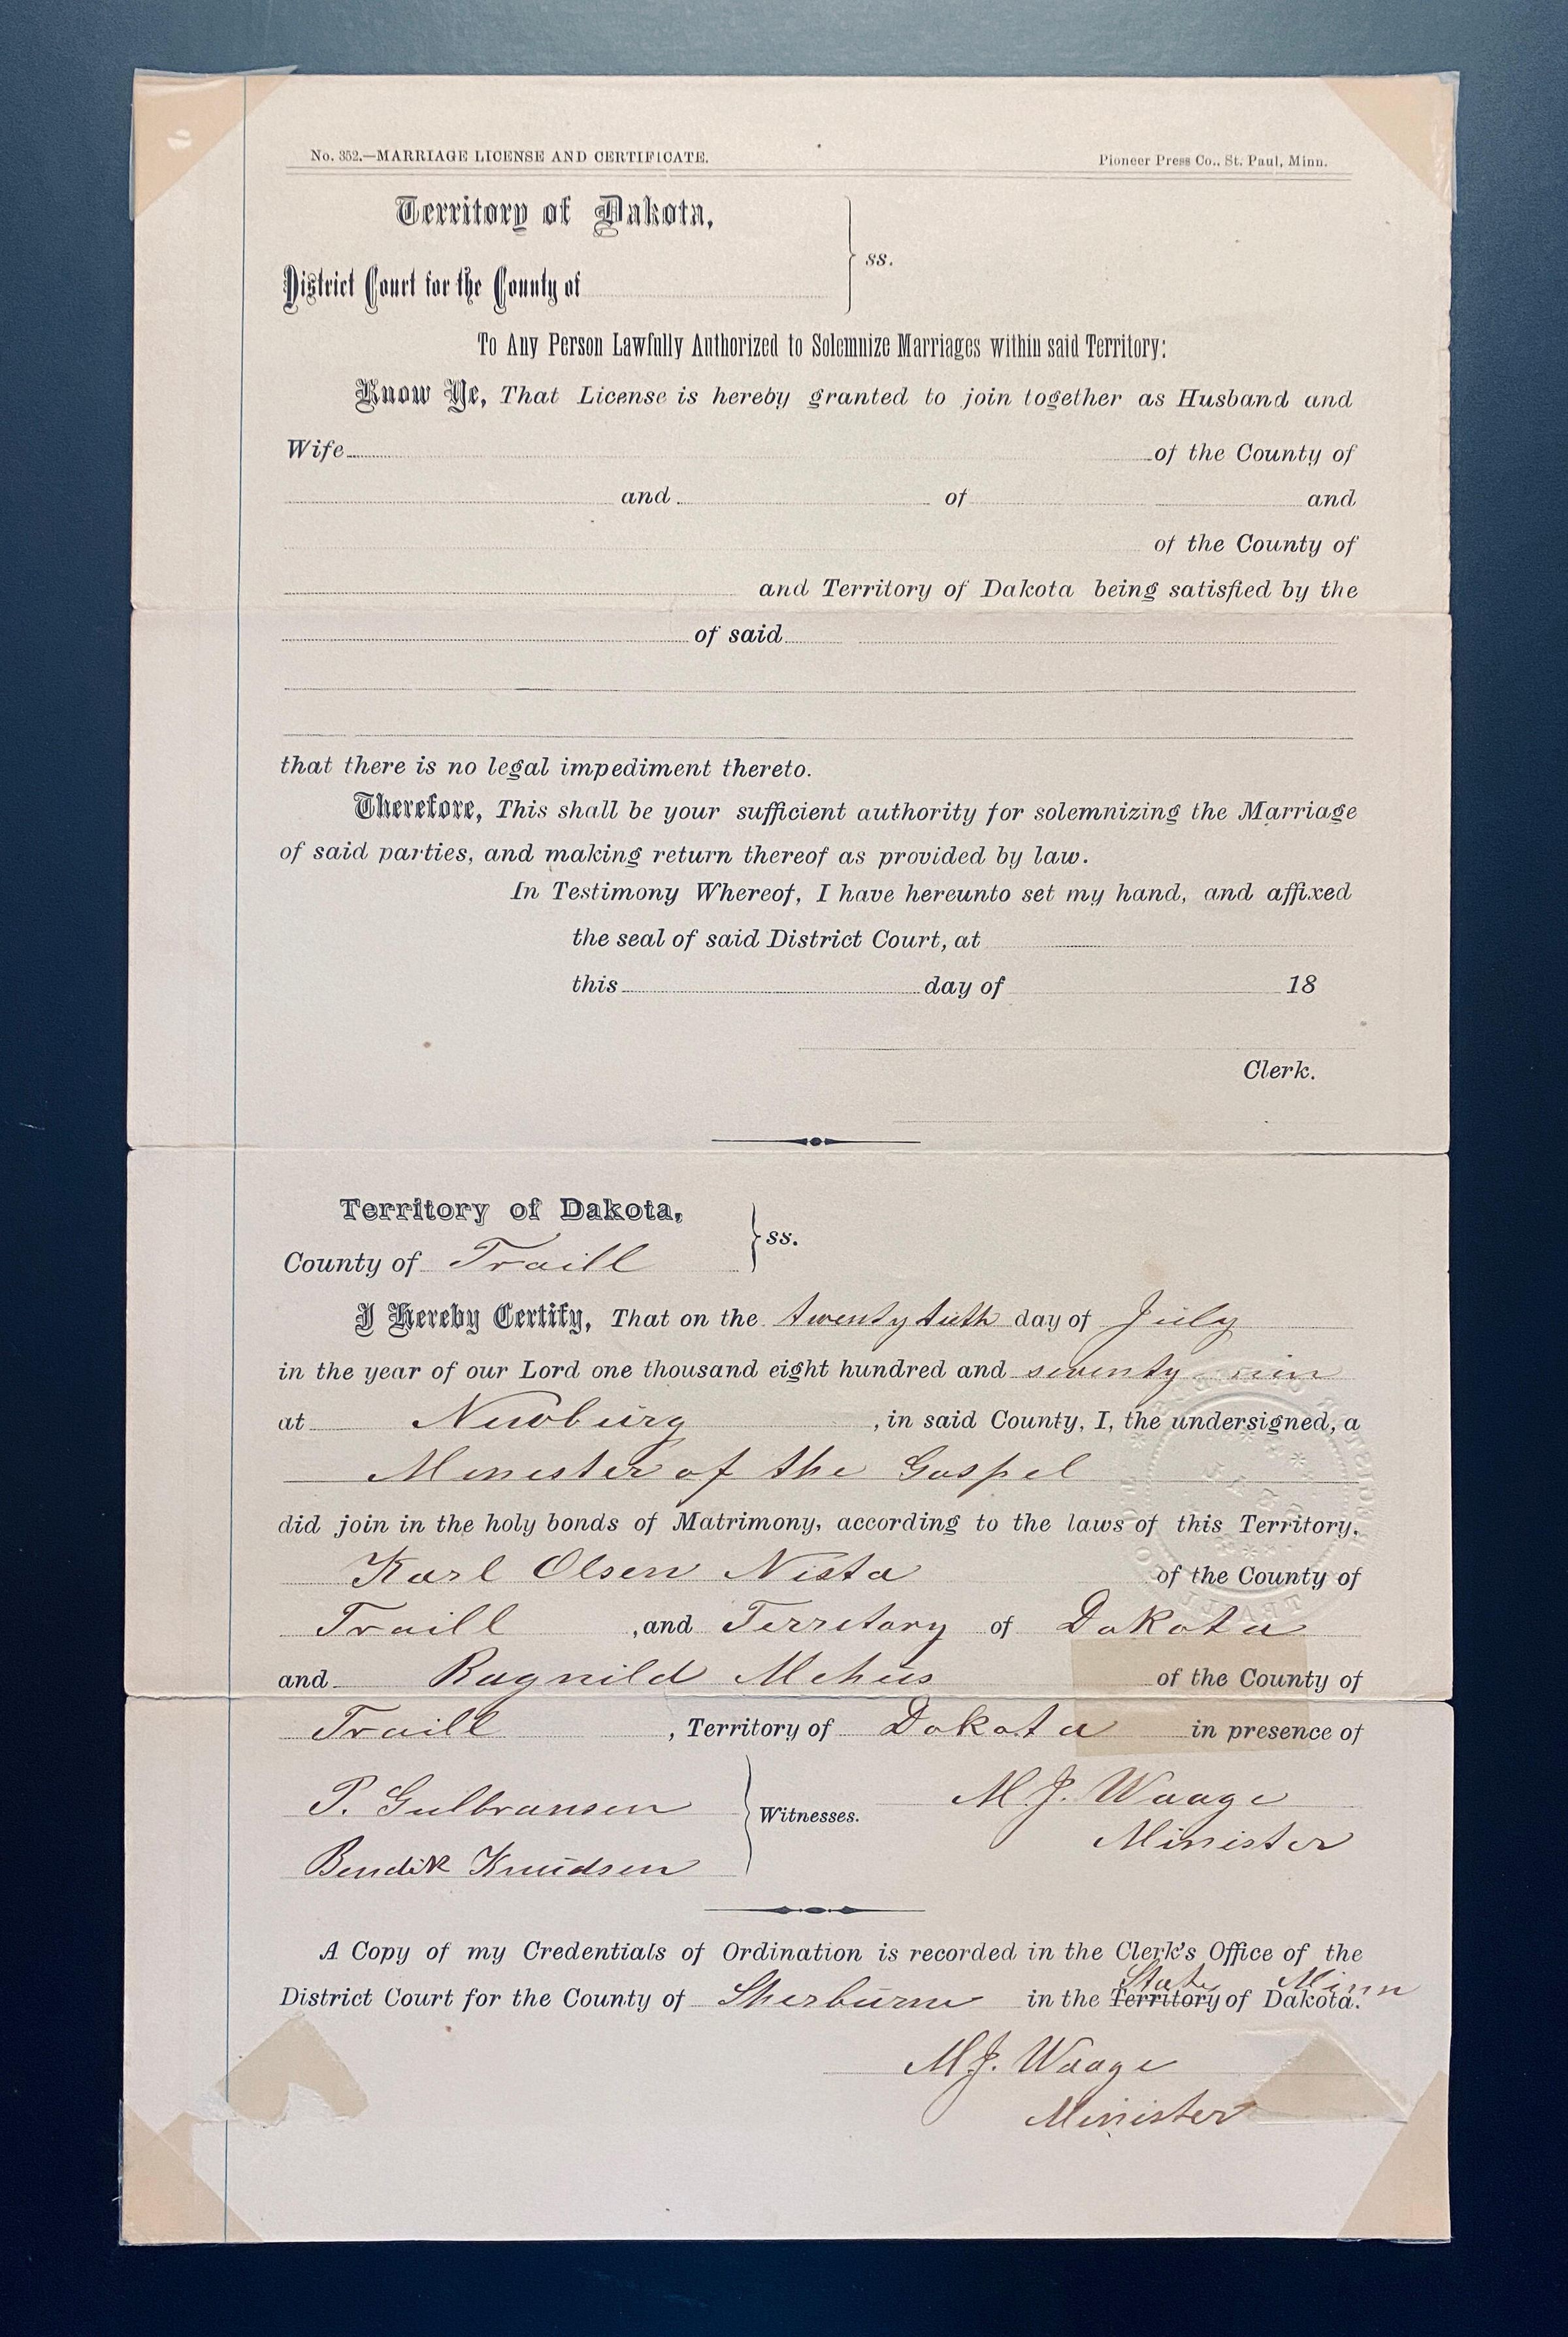 No. 352.—MARRIAGE LICENSE AND CERTIFICATE. Pioneer Press Co., St. Paul, Minn.
Territory of Dakota,
ss.
District Court for the County of
To Any Person Lawfully Authorized to Solemnize Marriages within said Territory:
Know Ye, That License is hereby granted to join together as Husband and
Wife of the County of
and of and
of the County of
and Territory of Dakota being satisfied by the
of said
that there is no legal impediment thereto.
Therefore, This shall be your sufficient authority for solemnizing the Marriage
of said parties, and making return thereof as provided by law.
In Testimony Whereof, I have hereunto set my hand, and affixed
the seal of said District Court, at
this day of 18
Clerk.
Territory of Dakota,
ss.
County of Traill
I Hereby Certify, That on the twenty day of July
in the year of our Lord one thousand eight hundred and seventy nin
at Newburg, in said County, I, the undersigned, a
Minister of the Gospel
did join in the holy bonds of Matrimony, according to the laws of this Territory,
Karl Olsen Nista of the County of
Traill, and Territory of Dakota
and Ragnild Mehus of the County of
Traill, Territory of Dakota in presence of
P. Gulbransen M. J. Waage
Witnesses.
Minister
Bendik Knudsen
A Copy of my Credentials of Ordination is recorded in the Clerk's Office of the
State Minn
District Court for the County of Sherburne in the Territory of Dakota.
M. J. Waage
Minister